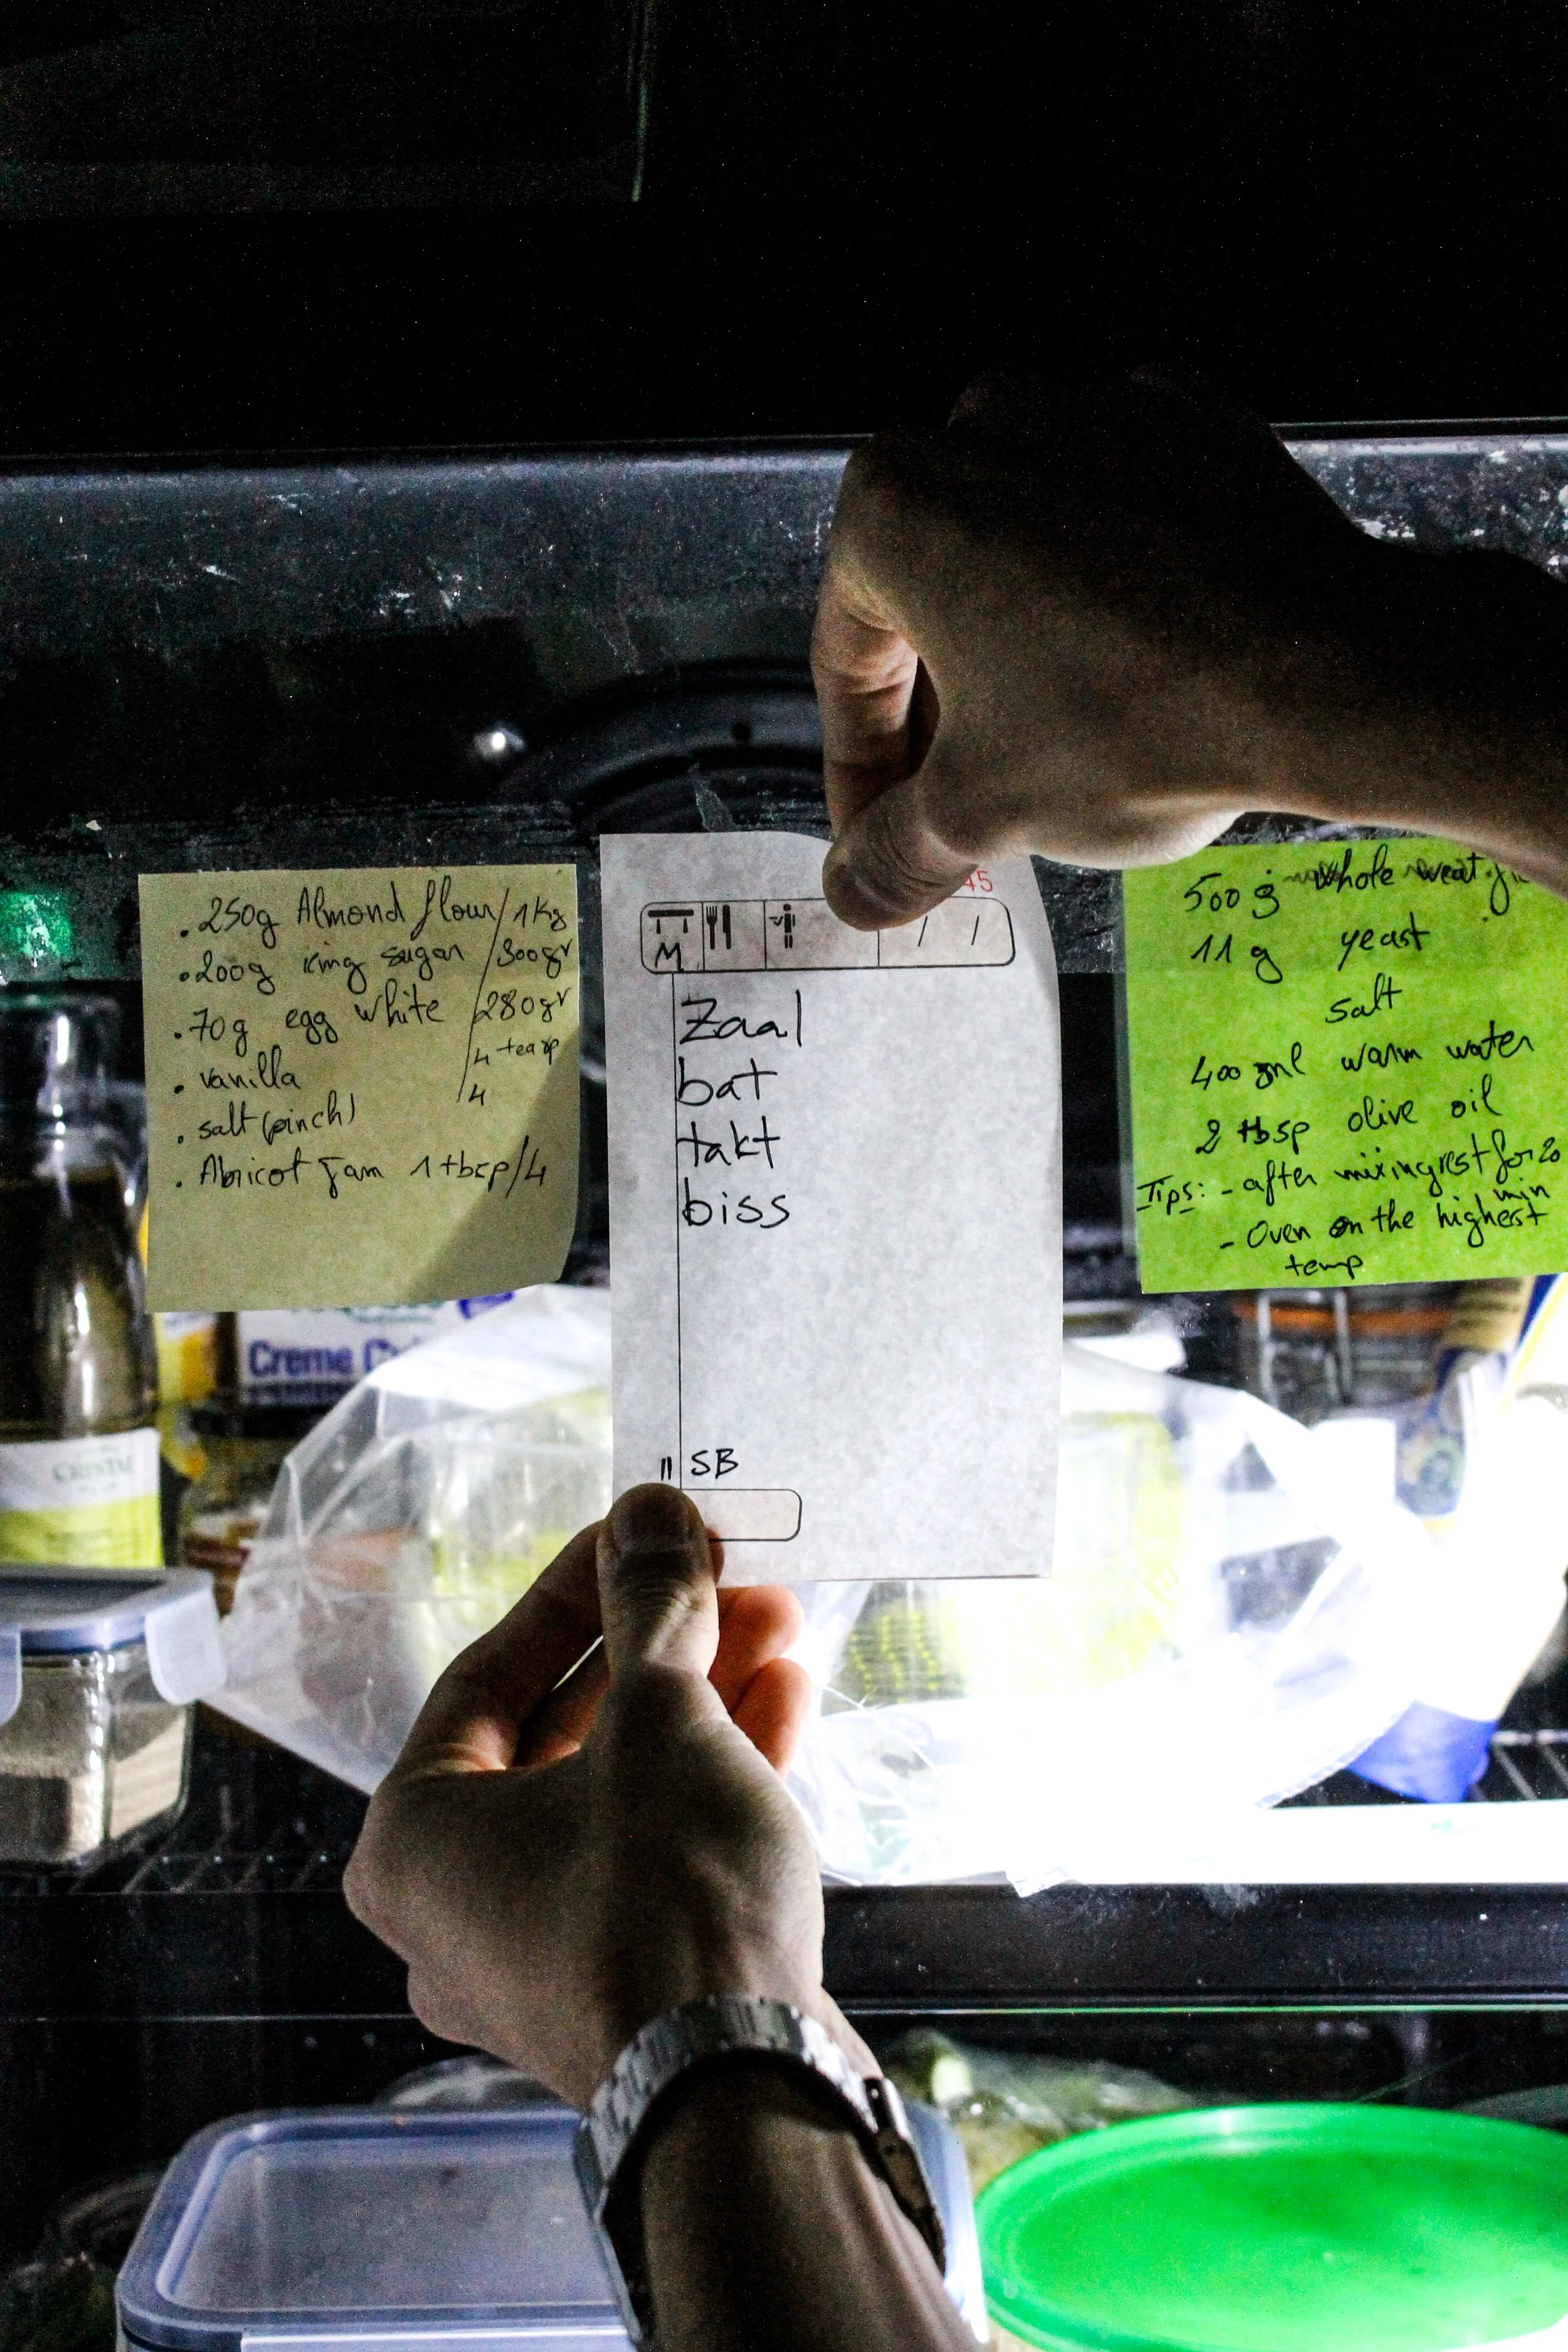 . 250g Almond flour / 1Kg
. 200g icing sugar / 800gr
. 70g egg white / 280gr
. vanilla / 4 teasp
. salt (pinch) / 4
. Abricot Jam 1 tbsp/4
45
M / /
Zaal
bat
takt
biss
11 SB
500 g whole weat
11 g yeast
salt
400 ml warm water
2 tbsp olive oil
Tips: - after mixing rest for 20
min
- Oven on the highest
temp
Creme
CRISTAL